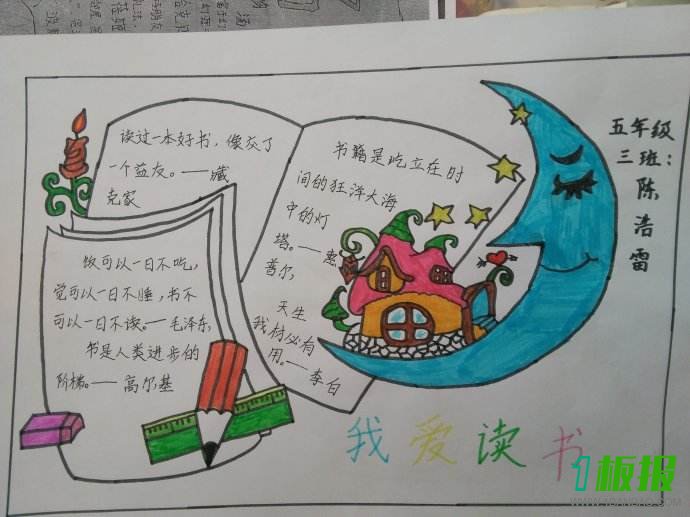 读过一本好书，像交了
一个益友。——臧
克家
书籍是屹立在时
间的狂洋大海
中的灯
塔。——惠
普尔，
天生
我材必有
用。——李白
饭可以一日不吃，
觉可以一日不睡，书不
可以一日不读。——毛泽东，
书是人类进步的
阶梯。——高尔基
五年级
三班：
陈
浩
雷
我爱读书
1板报